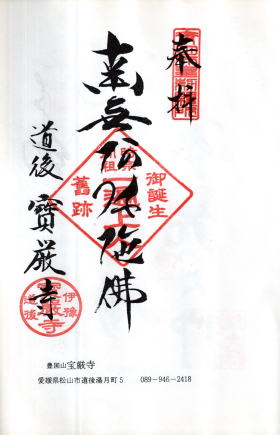 奉拝
南無阿弥陀佛
御誕生
舊跡
道後 寶厳寺
伊豫
道後
寶厳寺
豊国山 宝厳寺
愛媛県松山市道後湯月町5 089-946-2418